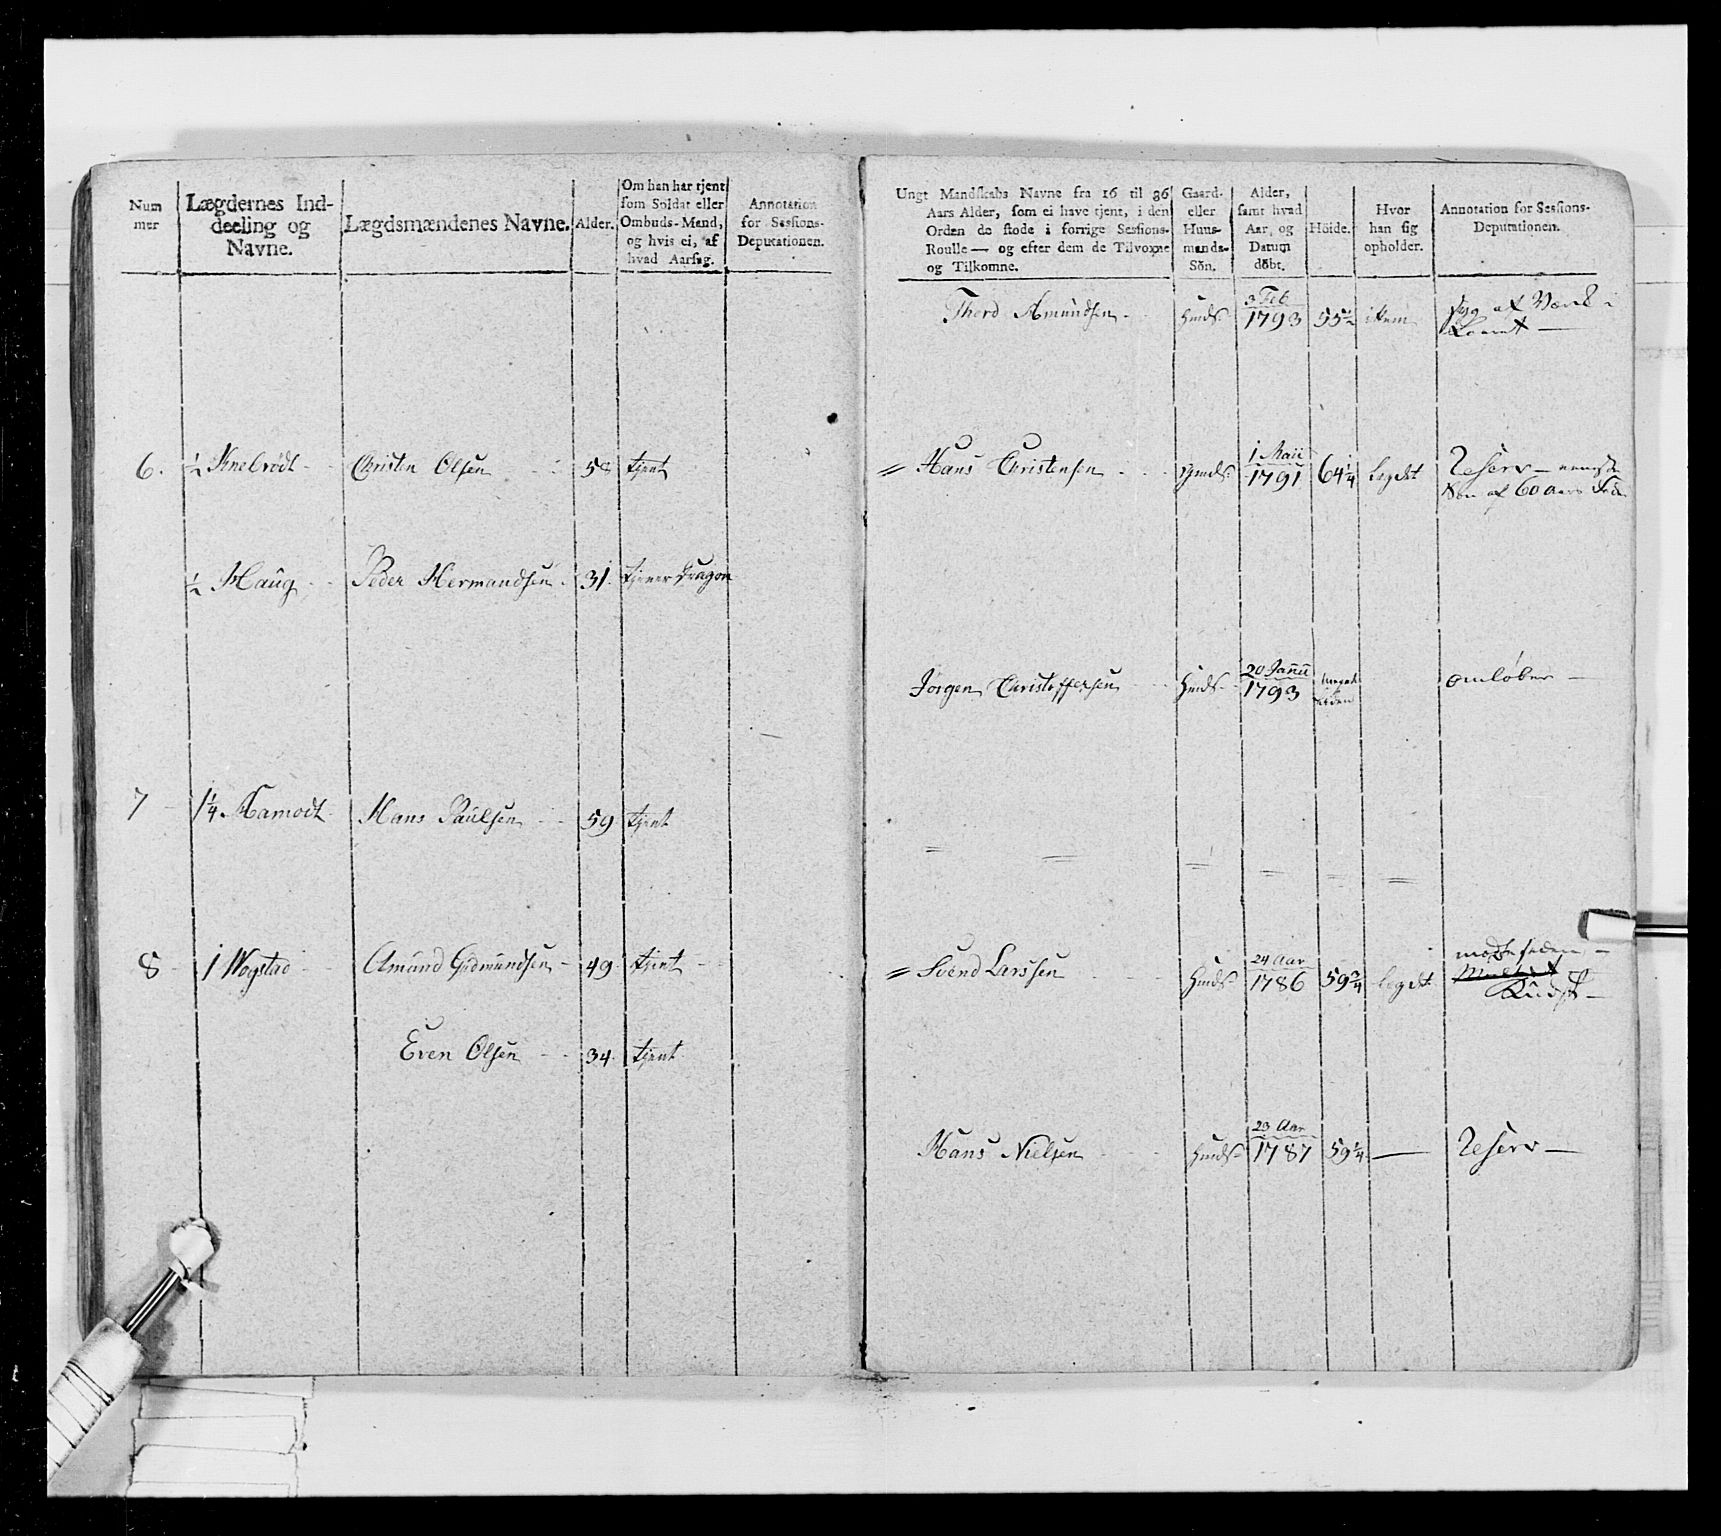 Num
mer
Lægdernes Ind-
deeling og
Navne.
Lægdsmændenes Navne.
Alder.
Om han har tjent
som Soldat eller
Ombuds-Mand,
og hvis ei, af
hvad Aarsag.
Annotation
for Sessions-
Deputationen.
6. ½ Knebrödt Christen Olsen 58 tjent
½ Haug Peder Hermandsen 31. tjener Dragon
7 1¼ Hans Paulsen 59 tjent
8 1 Wogstad Amund Gudmundsen 49 tjent
Even Olsen 34. tjent
Ungt Mandskabs Navne fra 16 til 36
Aars Alder, som ei have tjent, i den
Orden de stode i forrige Sessions-
Roulle — og efter dem de Tilvoxne
og Tilkomne.
Gaard-
eller
Huus-
mands-
Sön.
Alder,
samt hvad
Aar, og
Datum
döbt.
Höide.
Hvor
han sig
opholder.
Annotation for Sessions-
Deputationen.
3 Feb
Thord Amundsen Huuds. 1793 55½ af Værk i
1 Maii
= Hans Christensen Gmds. 1791 64¼ Legdet Reserv —
Søn af 60 aars
20 Janu
Jörgen Christoffersen Huuds 1793 omløber —
= = = = = =
24 Aar
= Svend Larssen Huuds 1786 59¾ legdet
23 Aar
Hans Nielsen Huuds 1787 59¼ — Reserv —